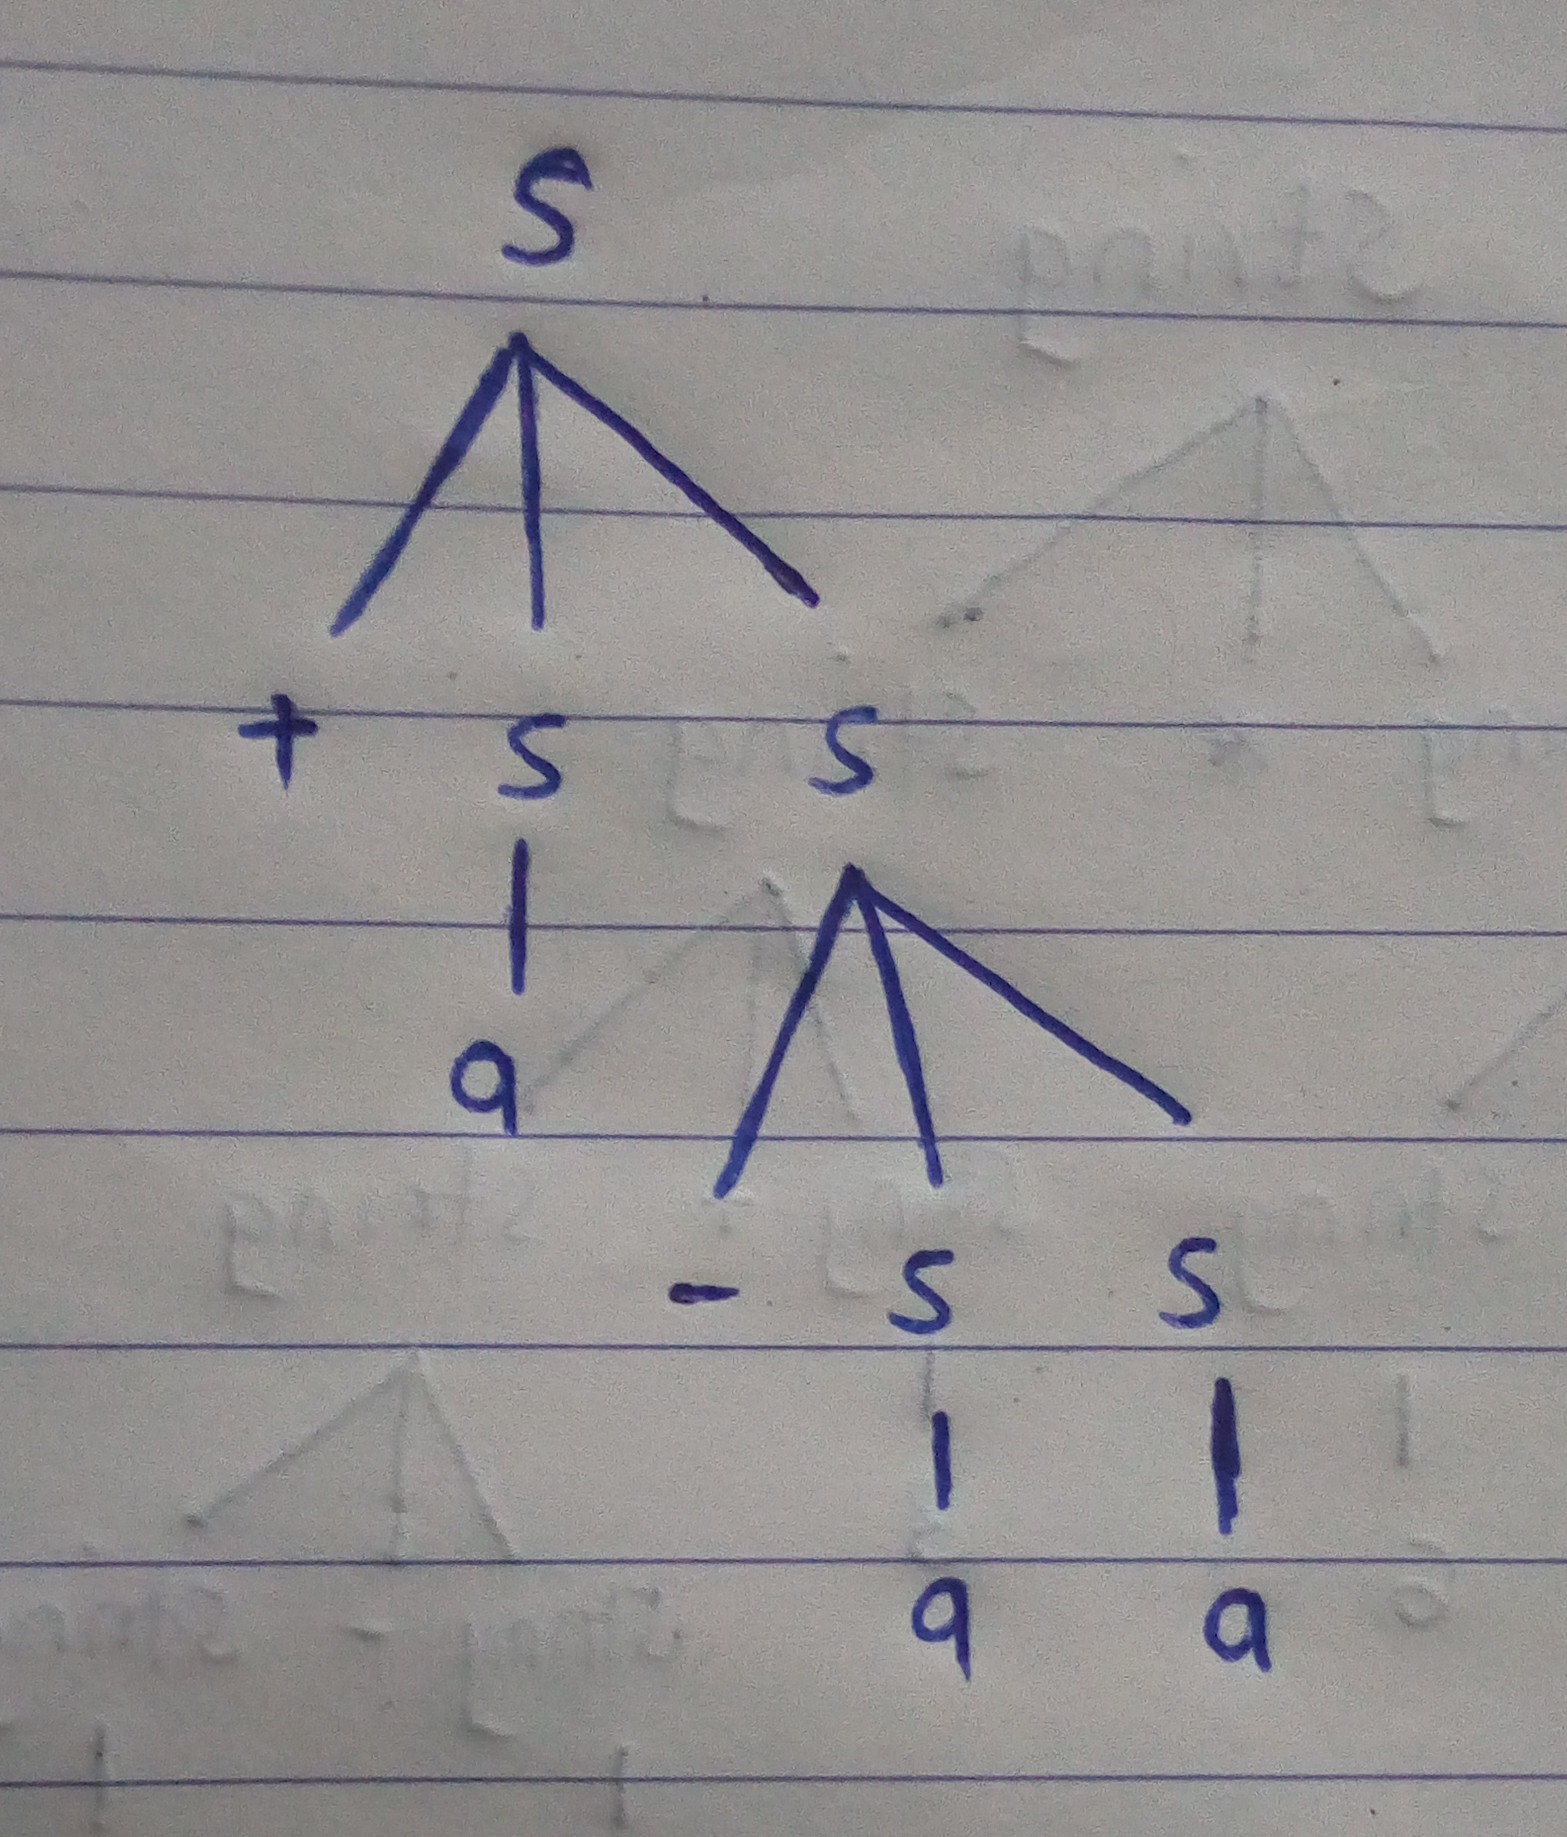 S
+ S S
a
- S S
a a